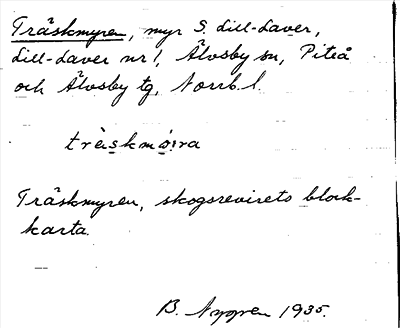 Träskmyren, myr S. Lill-Laver,
Lill-Laver nr 1, Älvsby sn, Piteå
och Älvsby tg, Norrb. l.
Träskmyren, skogsrevirets block-
karta.
B. Nygren 1935.